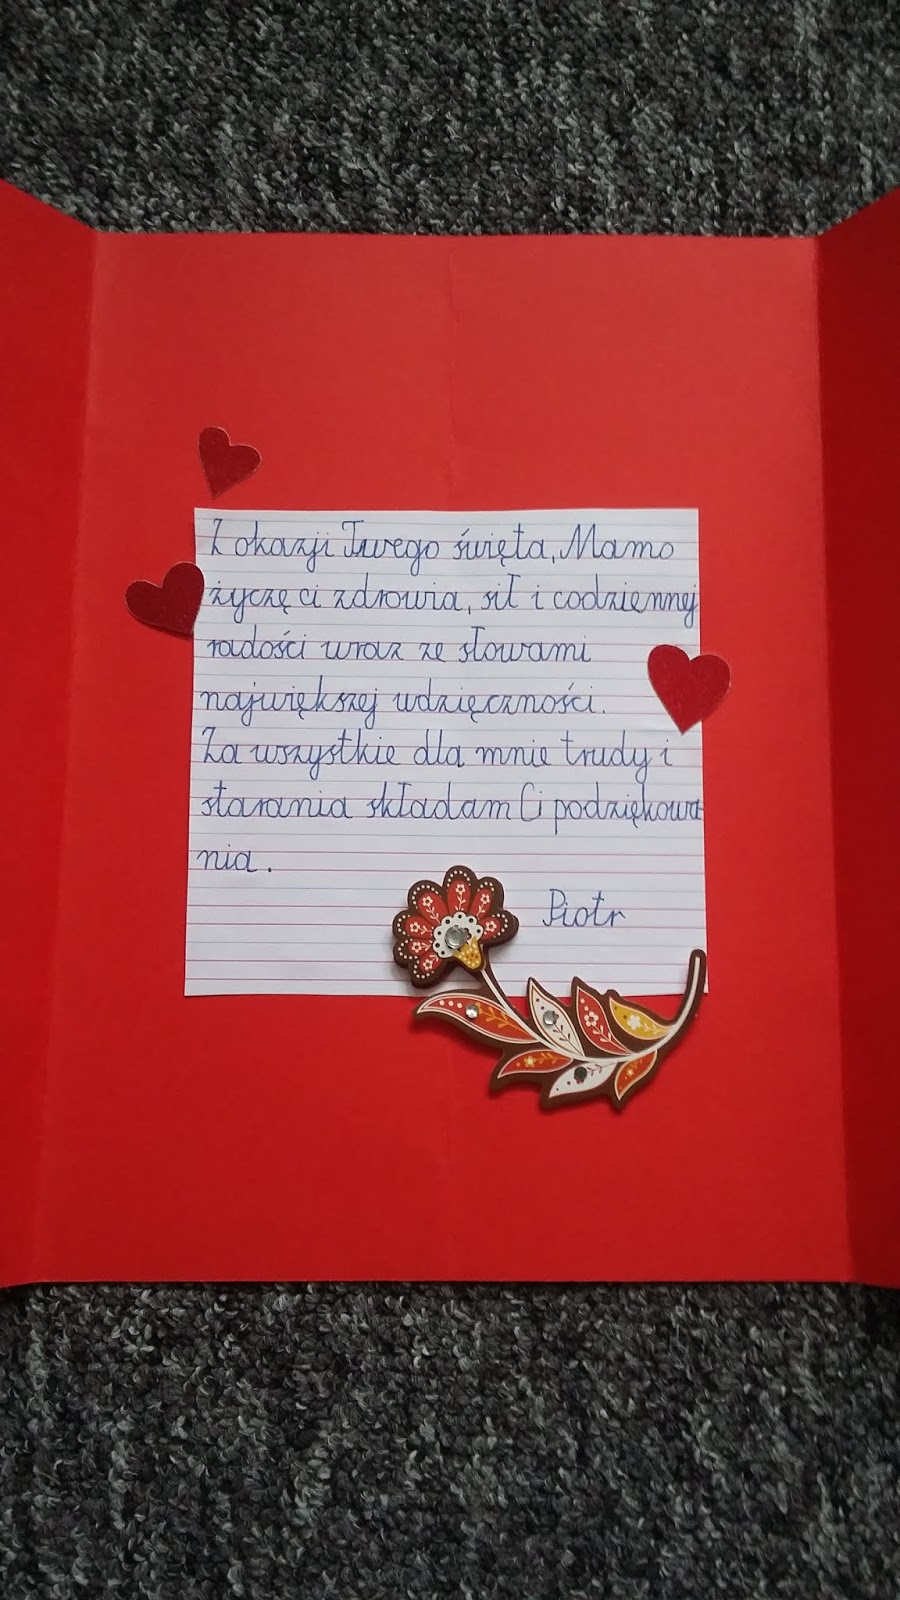 Z okazji Twego święta, Mamo
życzę ci zdrowia, sił i codziennej
radości wraz ze słowami
największej wdzięczności.
Za wszystkie dla mnie trudy i
starania składam Ci podziękowa-
nia.
Piotr